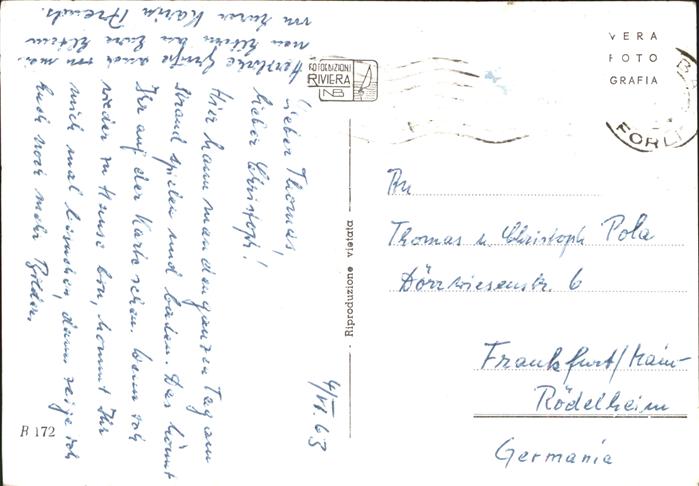 4/VI. 63
Lieber Thomas,
lieber Christoph!
Hier kann man den ganzen Tag am
Strand spielen und baden. Das könnt
Ihr auf der Karte sehen. Wenn ich
wieder zu Hause bin, kommt Ihr
mich mal besuchen, dann zeige ich
Euch noch mehr Bilder.
Herzliche Grüße auch von mei-
nen Eltern an Eure Eltern
von Eurer Karin
FOTOEDIZIONI
RIVIERA
NB
VERA
FOTO
GRAFIA
FORLI
Riproduzione vietata
An
Thomas u. Christoph Pola
Dörrwiesenstr. 6
Frankfurt/Main-
Rödelheim
Germania
R 172